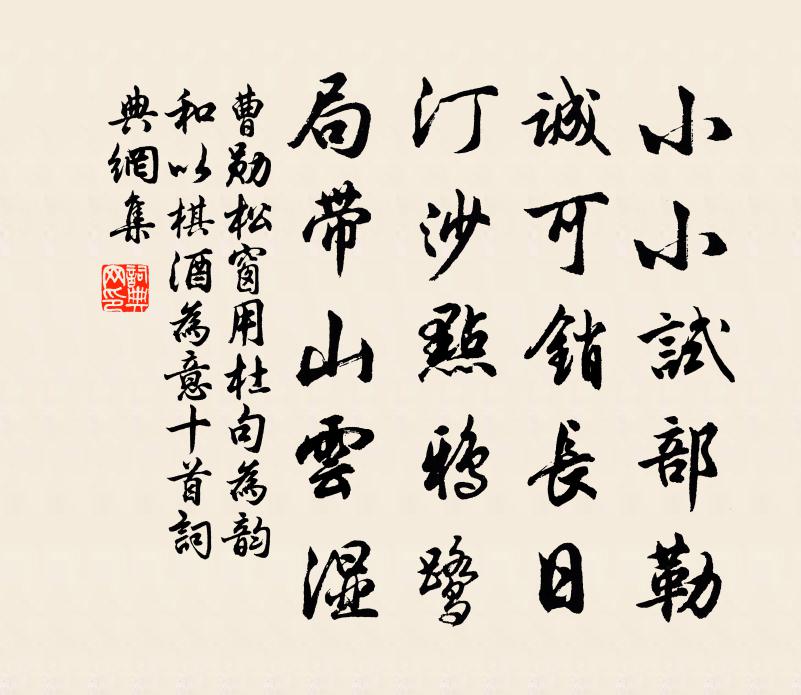 小小試部勒
誠可銷長日
汀沙點鴉鷺
局帶山雲湿
曹勛松窗用杜句為韵
和以棋酒為意十首詞
典網集
詞典網印